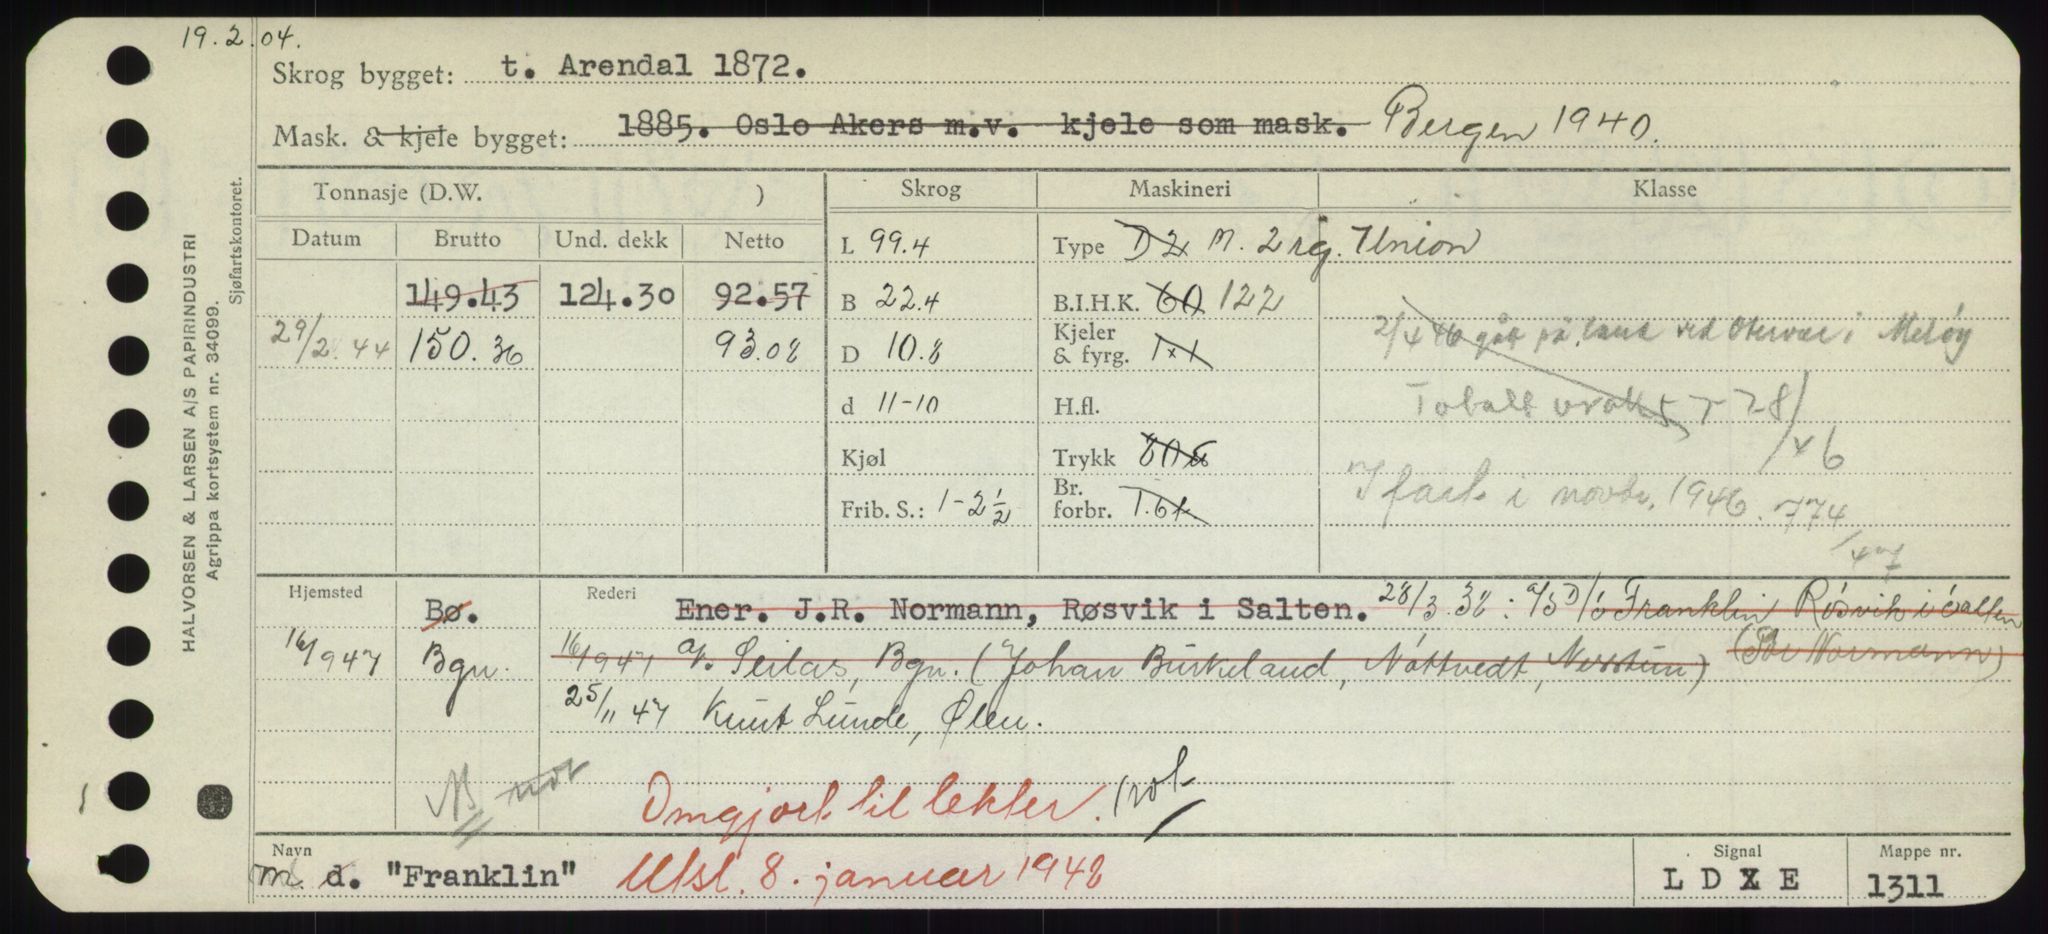 19.2.04.
Skrog bygget: t. Arendal 1872.
Mask. & kjele bygget: 1885. Oslo Akers m.v. kjele som mask. Bergen 1940.
Tonnasje (D.W. ) Skrog Maskineri Klasse
Datum Brutto Und. dekk Netto
L 99.4 Type D 2 M. 2 rg. Union
149.43 124.30 92.57 B 22.4 B.I.H.K. 60 122
29/2.44 150.36 93.08 D 10.8 Kjeler & fyrg. 1x1
2/4 46 gått på land ved i Meløy
d 11-10 H.fl.
Totalt vrak 28/46
Kjøl Trykk 80
I fart i novbr. 1946. 774/47
Frib. S.: 1-2 1/2 Br. forbr. 1.6t.
Hjemsted Bø. Rederi Ener. J.R. Normann, Røsvik i Salten. 28/3.38: a/s D/S Franklin Røsvik i Salten
(Normann)
16/9 47 Bgn. 16/9 47 Seilas, Bgn. (Johan Birkeland, Nåttvedt, Nesttun)
25/11 47 Knut Lunde, Ølen.
Omgjort til lekter.
Navn m d. "Franklin" Utsl. 8. januar 1948
Signal L D X E
Mappe nr. 1311
HALVORSEN & LARSEN A/S PAPIRINDUSTRI
Agrippa kortsystem nr. 34099.
Sjøfartskontoret.